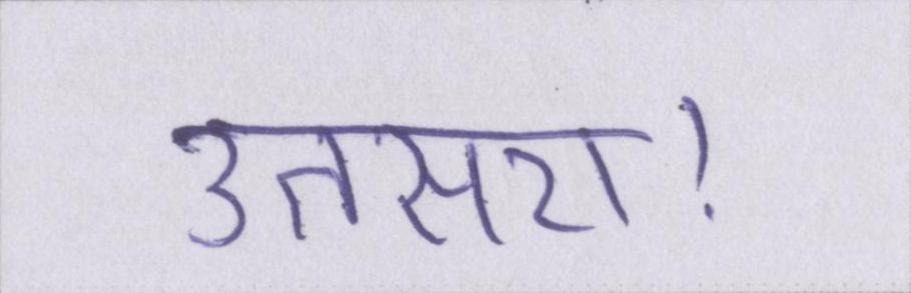 उतसरा!